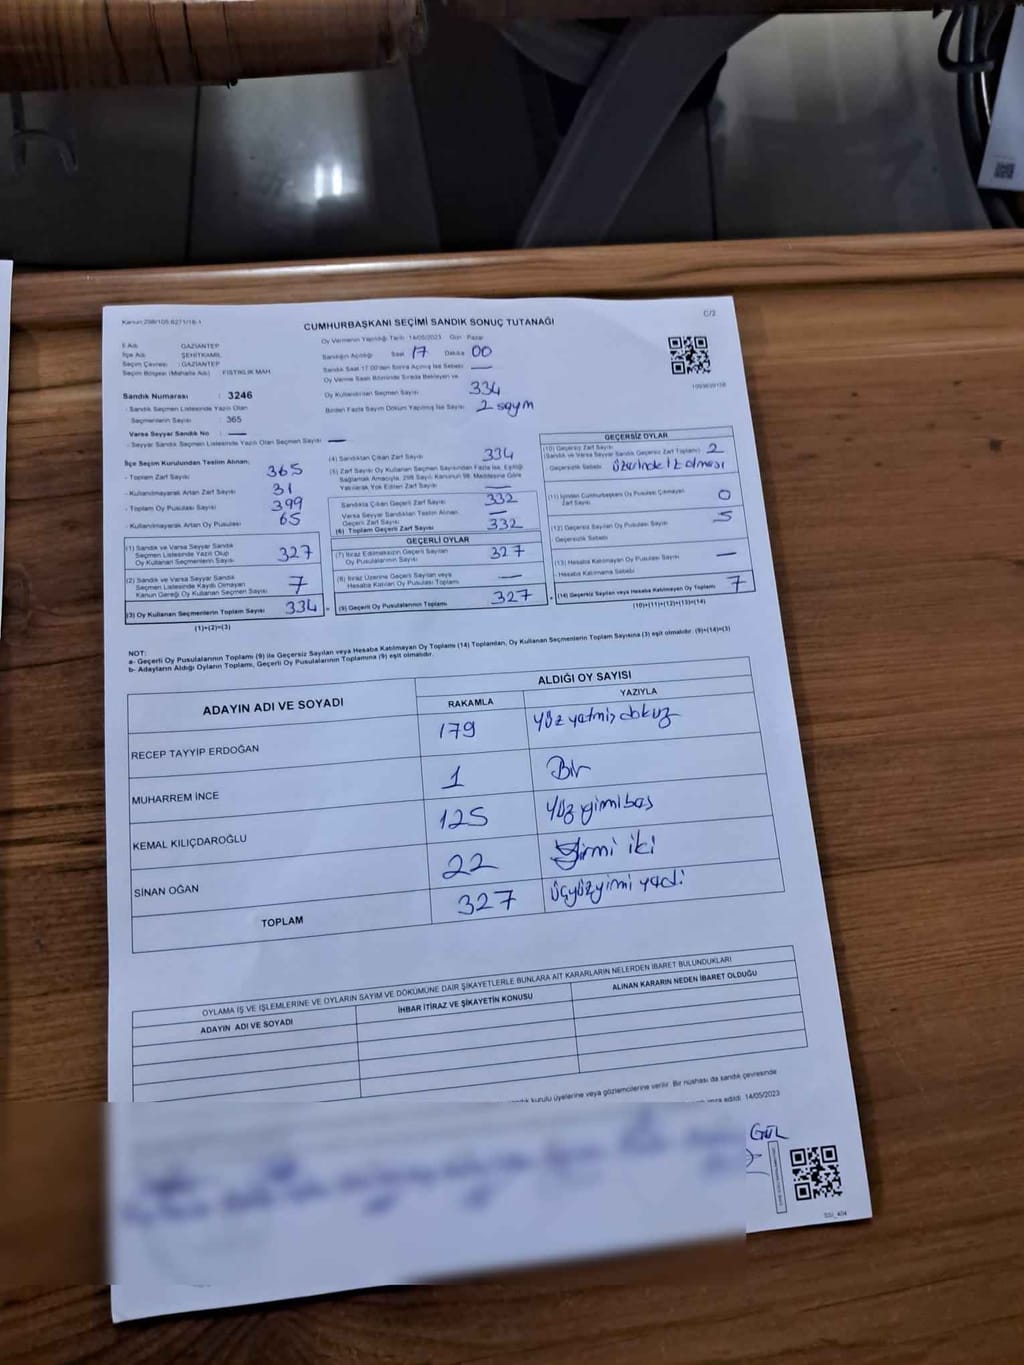 Kanun:298/105 6271/16-1
C/2
CUMHURBAŞKANI SEÇİMİ SANDIK SONUÇ TUTANAĞI
İl Adı: GAZİANTEP
İlçe Adı: ŞEHİTKAMİL
Seçim Çevresi: GAZİANTEP
Seçim Bölgesi (Mahalle Adı): FISTIKLIK MAH.
Oy Vermenin Yapıldığı Tarih: 14/05/2023 Gün: Pazar
Sandığın Açıldığı Saat 17 Dakika 00
Sandık Saat 17:00'den Sonra Açılmış İse Sebebi: —
Oy Verme Saati Bitiminde Sırada Bekleyen ve
Oy Kullandırılan Seçmen Sayısı 334
Birden Fazla Sayım Döküm Yapılmış İse Sayısı 2 sayım
Sandık Numarası : 3246
- Sandık Seçmen Listesinde Yazılı Olan
Seçmenlerin Sayısı 365
Varsa Seyyar Sandık No : —
- Seyyar Sandık Seçmen Listesinde Yazılı Olan Seçmen Sayısı —
İlçe Seçim Kurulundan Teslim Alınan;
- Toplam Zarf Sayısı 365
- Kullanılmayarak Artan Zarf Sayısı 31
- Toplam Oy Pusulası Sayısı 399
- Kullanılmayarak Artan Oy Pusulası 65
(1) Sandık ve Varsa Seyyar Sandık
Seçmen Listesinde Yazılı Olup
Oy Kullanan Seçmenlerin Sayısı 327
(2) Sandık ve Varsa Seyyar Sandık
Seçmen Listesinde Kaydı Olmayan
Kanun Gereği Oy Kullanan Seçmen Sayısı 7
(3) Oy Kullanan Seçmenlerin Toplam Sayısı 334
(1)+(2)=(3)
(4) Sandıktan Çıkan Zarf Sayısı 334
(5) Zarf Sayısı Oy Kullanan Seçmen Sayısından Fazla İse, Eşitliği
Sağlamak Amacıyla, 298 Sayılı Kanunun 98. Maddesine Göre
Yakılarak Yok Edilen Zarf Sayısı —
Sandıkta Çıkan Geçerli Zarf Sayısı 332
Varsa Seyyar Sandıktan Teslim Alınan
Geçerli Zarf Sayısı —
(6) Toplam Geçerli Zarf Sayısı 332
GEÇERLİ OYLAR
(7) İtiraz Edilmeksizin Geçerli Sayılan
Oy Pusulasının Sayısı 327
(8) İtiraz Üzerine Geçerli Sayılan veya
Hesaba Katılan Oy Pusulası Toplamı —
(9) Geçerli Oy Pusulalarının Toplamı 327
GEÇERSİZ OYLAR
(10) Geçersiz Zarf Sayısı
(Sandık ve Varsa Seyyar Sandık Geçersiz Zarf Toplamı) 2
- Geçersizlik Sebebi üzerinde iz olması
(11) İçinden Cumhurbaşkanı Oy Pusulası Çıkmayan
Zarf Sayısı 0
(12) Geçersiz Sayılan Oy Pusulası Sayısı 5
Geçersizlik Sebebi
(13) Hesaba Katılmayan Oy Pusulası Sayısı —
- Hesaba Katılmama Sebebi
(14) Geçersiz Sayılan veya Hesaba Katılmayan Oy Toplamı 7
(10)+(11)+(12)+(13)=(14)
NOT:
a- Geçerli Oy Pusulalarının Toplamı (9) ile Geçersiz Sayılan veya Hesaba Katılmayan Oy Toplamı (14) Toplamları, Oy Kullanan Seçmenlerin Toplam Sayısına (3) eşit olmalıdır. (9)+(14)=(3)
b- Adayların Aldığı Oyların Toplamı, Geçerli Oy Pusulalarının Toplamına (9) eşit olmalıdır.
ADAYIN ADI VE SOYADI
ALDIĞI OY SAYISI
RAKAMLA YAZIYLA
RECEP TAYYİP ERDOĞAN 179 yüz yetmiş dokuz
MUHARREM İNCE 1 Bir
KEMAL KILIÇDAROĞLU 125 yüz yirmibeş
SİNAN OĞAN 22 yirmi iki
TOPLAM 327 üçyüzyirmi yedi
OYLAMA İŞ VE İŞLEMLERİNE VE OYLARIN SAYIM VE DÖKÜMÜNE DAİR ŞİKAYETLERLE BUNLARA AİT KARARLARIN NELERDEN İBARET BULUNDUKLARI
ADAYIN ADI VE SOYADI İHBAR İTİRAZ VE ŞİKAYETİN KONUSU ALINAN KARARIN NEDEN İBARET OLDUĞU
kurulu üyelerine veya gözlemcilerine verilir. Bir nüshası da sandık çevresinde
edildi. 14/05/2023
GÜL
SSI_404